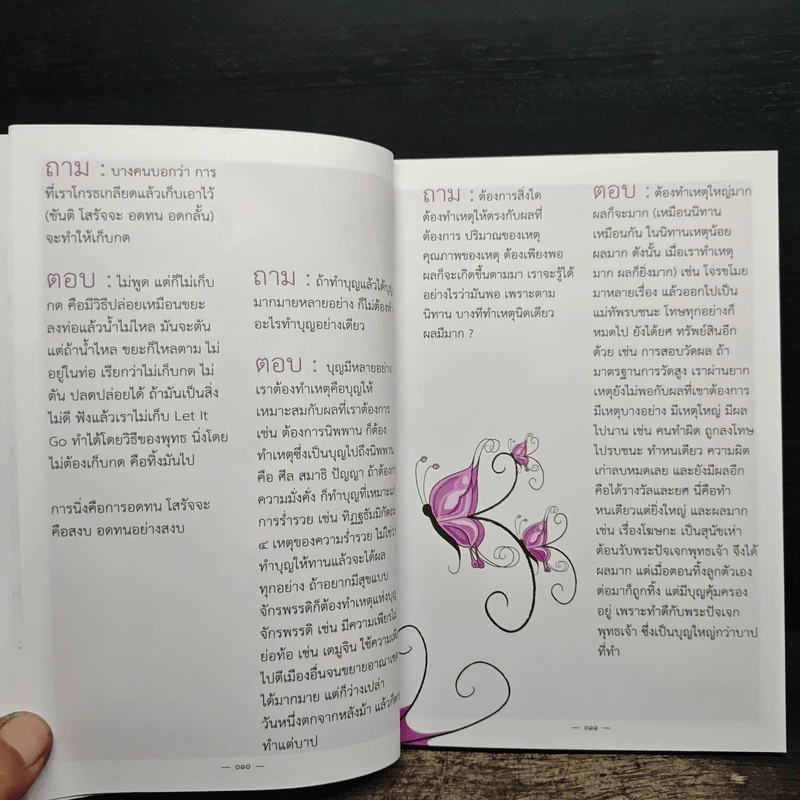 ถาม : บางคนบอกว่า การ
ที่เราโกรธเกลียดแล้วเก็บเอาไว้
(ขันติ โสรัจจะ อดทน อดกลั้น)
จะทำให้เก็บกด
ตอบ : ไม่พูด แต่ก็ไม่เก็บ
กด คือมีวิธีปล่อยเหมือนขยะ
ลงท่อแล้วน้ำไม่ไหล มันจะตัน
แต่ถ้าน้ำไหล ขยะก็ไหลตาม ไม่
อยู่ในท่อ เรียกว่าไม่เก็บกด ไม่
ตัน ปลดปล่อยได้ ถ้ามันเป็นสิ่ง
ไม่ดี ฟังแล้วเราไม่เก็บ Let It
Go ทำได้โดยวิธีของพุทธ นิ่งโดย
ไม่ต้องเก็บกด คือทิ้งมันไป
การนิ่งคือการอดทน โสรัจจะ
คือสงบ อดทนอย่างสงบ
ถาม : ถ้าทำบุญแล้วได้บุญ
มากมายหลายอย่าง ก็ไม่ต้องทำ
อะไรทำบุญอย่างเดียว
ตอบ : บุญมีหลายอย่าง
เราต้องทำเหตุคือบุญให้
เหมาะสมกับผลที่เราต้องการ
เช่น ต้องการนิพพาน ก็ต้อง
ทำเหตุซึ่งเป็นบุญไปถึงนิพพาน
คือ ศีล สมาธิ ปัญญา ถ้าต้องการ
ความมั่งคั่ง ก็ทำบุญที่เหมาะแก่
การร่ำรวย เช่น ทิฏฐธัมมิกัตถะ
๔ เหตุของความร่ำรวย ไม่ใช่ว่า
ทำบุญให้ทานแล้วจะได้ผล
ทุกอย่าง ถ้าอยากมีสุขแบบ
จักรพรรดิก็ต้องทำเหตุแห่งบุญ
จักรพรรดิ เช่น มีความเพียรไม่
ย่อท้อ เช่น เตมูจิน ใช้ความเพียร
ไปตีเมืองอื่นจนขยายอาณาเขต
ได้มากมาย แต่ก็ว่างเปล่า
วันหนึ่งตกจากหลังม้า แล้วก็ตาย
ทำแต่บาป
— ๐๑๐ —
ถาม : ต้องการสิ่งใด
ต้องทำเหตุให้ตรงกับผลที่
ต้องการ ปริมาณของเหตุ
คุณภาพของเหตุ ต้องเพียงพอ
ผลก็จะเกิดขึ้นตามมา เราจะรู้ได้
อย่างไรว่ามันพอ เพราะตาม
นิทาน บางทีทำเหตุนิดเดียว
ผลมีมาก ?
ตอบ : ต้องทำเหตุใหญ่มาก
ผลก็จะมาก (เหมือนนิทาน
เหมือนกัน ในนิทานเหตุน้อย
ผลมาก ดังนั้น เมื่อเราทำเหตุ
มาก ผลก็ยิ่งมาก) เช่น โจรขโมย
มาหลายเรื่อง แล้วออกไปเป็น
แม่ทัพรบชนะ โทษทุกอย่างก็
หมดไป ยังได้ยศ ทรัพย์สินอีก
ด้วย เช่น การสอบวัดผล ถ้า
มาตรฐานการวัดสูง เราผ่านยาก
เหตุยังไม่พอกับผลที่เขาต้องการ
มีเหตุบางอย่าง มีเหตุใหญ่ มีผล
ไปนาน เช่น คนทำผิด ถูกลงโทษ
ไปรบชนะ ทำหนเดียว ความผิด
เก่าลบหมดเลย และยังมีผลอีก
คือได้รางวัลและยศ นี่คือทำ
หนเดียวแต่ยิ่งใหญ่ และผลมาก
เช่น เรื่องโฆษกะ เป็นสุนัขเห่า
ต้อนรับพระปัจเจกพุทธเจ้า จึงได้
ผลมาก แต่เมื่อตอนทิ้งลูกตัวเอง
ต่อมาก็ถูกทิ้ง แต่มีบุญคุ้มครอง
อยู่ เพราะทำดีกับพระปัจเจก
พุทธเจ้า ซึ่งเป็นบุญใหญ่กว่าบาป
ที่ทำ
— ๐๑๑ —